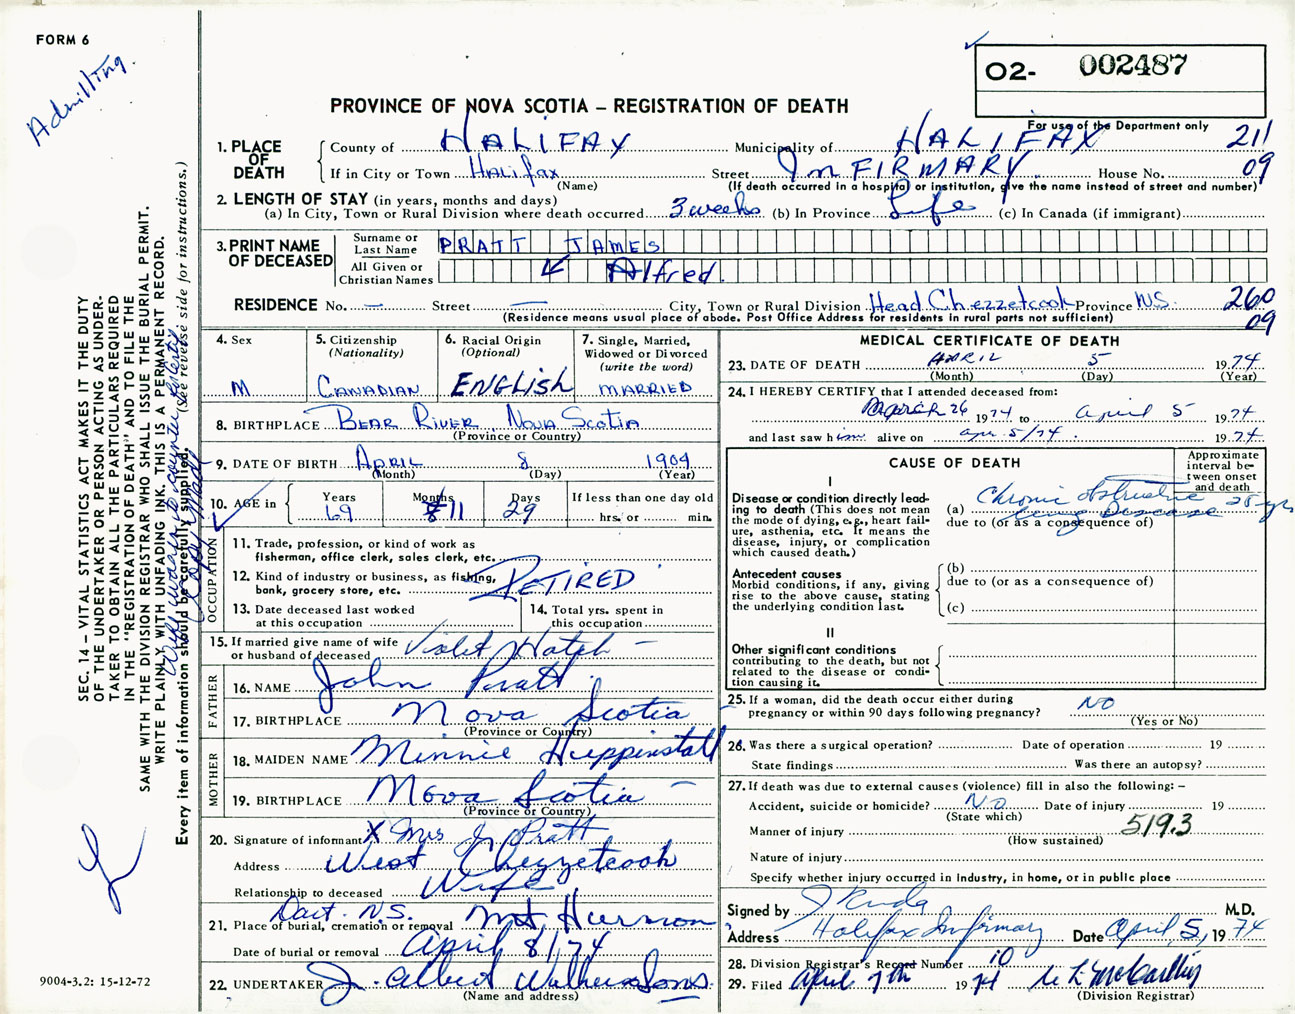 FORM 6
Admitting.
O2- 002487
For use of the Department only
PROVINCE OF NOVA SCOTIA – REGISTRATION OF DEATH
1. PLACE OF DEATH
County of HALIFAX Municipality of HALIFAX 211
If in City or Town Halifax Street InFIRMARY House No. 09
(Name) (If death occurred in a hospital or institution, give the name instead of street and number)
2. LENGTH OF STAY (in years, months and days)
(a) In City, Town or Rural Division where death occurred 3 weeks (b) In Province Life (c) In Canada (if immigrant)
3. PRINT NAME OF DECEASED
Surname or Last Name PRATT JAMES
All Given or Christian Names Alfred.
RESIDENCE No. — Street — City, Town or Rural Division Head Chezzetcook Province N.S. 260
(Residence means usual place of abode. Post Office Address for residents in rural parts not sufficient) 09
4. Sex M
5. Citizenship (Nationality) CANADIAN
6. Racial Origin (Optional) ENGLISH
7. Single, Married, Widowed or Divorced (write the word) MARRIED
8. BIRTHPLACE BEAR RIVER, NOVA SCOTIA
(Province or Country)
9. DATE OF BIRTH APRIL 8 1904
(Month) (Day) (Year)
10. AGE in Years 69 Months 11 Days 29 If less than one day old hrs. or min.
OCCUPATION
11. Trade, profession, or kind of work as fisherman, office clerk, sales clerk, etc.
12. Kind of industry or business, as fishing, bank, grocery store, etc. RETIRED
13. Date deceased last worked at this occupation
14. Total yrs. spent in this occupation
15. If married give name of wife or husband of deceased Violet Hatch –
FATHER
16. NAME John Pratt
17. BIRTHPLACE Nova Scotia
(Province or Country)
MOTHER
18. MAIDEN NAME Minnie Huppinstall
19. BIRTHPLACE Nova Scotia –
(Province or Country)
20. Signature of informant X Mrs J. Pratt
Address West Chezzetcook
Relationship to deceased Wife
Dart. N.S.
21. Place of burial, cremation or removal Mt Hermon
Date of burial or removal April 8/74
22. UNDERTAKER J. Albert Walker & Sons.
(Name and address)
MEDICAL CERTIFICATE OF DEATH
23. DATE OF DEATH APRIL 5 1974
(Month) (Day) (Year)
24. I HEREBY CERTIFY that I attended deceased from:
March 26 1974 to April 5 1974
and last saw him alive on Apr. 5/74. 1974
CAUSE OF DEATH
Approximate interval between onset and death
I
Disease or condition directly leading to death (This does not mean the mode of dying, e.g., heart failure, asthenia, etc. It means the disease, injury, or complication which caused death.)
(a) Chronic obstructive lung Disease 25 yrs
due to (or as a consequence of)
Antecedent causes
Morbid conditions, if any, giving rise to the above cause, stating the underlying condition last.
(b)
due to (or as a consequence of)
(c)
II
Other significant conditions contributing to the death, but not related to the disease or condition causing it.
25. If a woman, did the death occur either during pregnancy or within 90 days following pregnancy? NO
(Yes or No)
26. Was there a surgical operation? Date of operation 19
State findings Was there an autopsy?
27. If death was due to external causes (violence) fill in also the following: –
Accident, suicide or homicide? NO Date of injury 19
(State which)
Manner of injury 519.3
(How sustained)
Nature of injury
Specify whether injury occurred in Industry, in home, or in public place
Signed by M.D.
Address Halifax Infirmary Date April 5, 1974
28. Division Registrar's Record Number 10
29. Filed April 7th 1974
(Division Registrar)
SEC. 14 – VITAL STATISTICS ACT MAKES IT THE DUTY
OF THE UNDERTAKER OR PERSON ACTING AS UNDER-
TAKER TO OBTAIN ALL THE PARTICULARS REQUIRED
IN THE "REGISTRATION OF DEATH" AND TO FILE THE
SAME WITH THE DIVISION REGISTRAR WHO SHALL ISSUE THE BURIAL PERMIT.
WRITE PLAINLY WITH UNFADING INK. THIS IS A PERMANENT RECORD.
Every item of information should be carefully supplied. (See reverse side for instructions.)
9004-3.2: 15-12-72